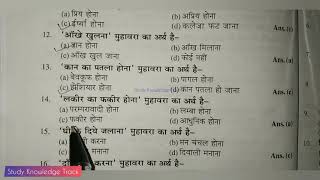 (a) प्रिय होना (b) अप्रिय होना
(c) ईर्ष्या होना (d) कलेजा फट जाना
12. 'आँखें खुलना' मुहावरा का अर्थ है– Ans. (c)
(a) ज्ञान होना (b) आँख मिलाना
(c) आँख खुल जाना (d) कोई नहीं
13. 'कान का पतला होना' मुहावरा का अर्थ है– Ans. (a)
(a) बेवकूफ होना (b) पागल होना
(c) होना (d) कान पतला हो जाना
14. 'लकीर का फकीर होना' मुहावरा का अर्थ है– Ans. (c)
(a) परम्परावादी होना (b) लम्बा होना
(c) फकीर होना (d) आधुनिक होना
15. दिये जलाना' मुहावरा का अर्थ है– Ans. (a)
करना (b) मन चंचल होना
मनाना (d) दिवाली मनाना
16. करना' मुहावरा का अर्थ है– Ans. (c)
Study Knowledge Track